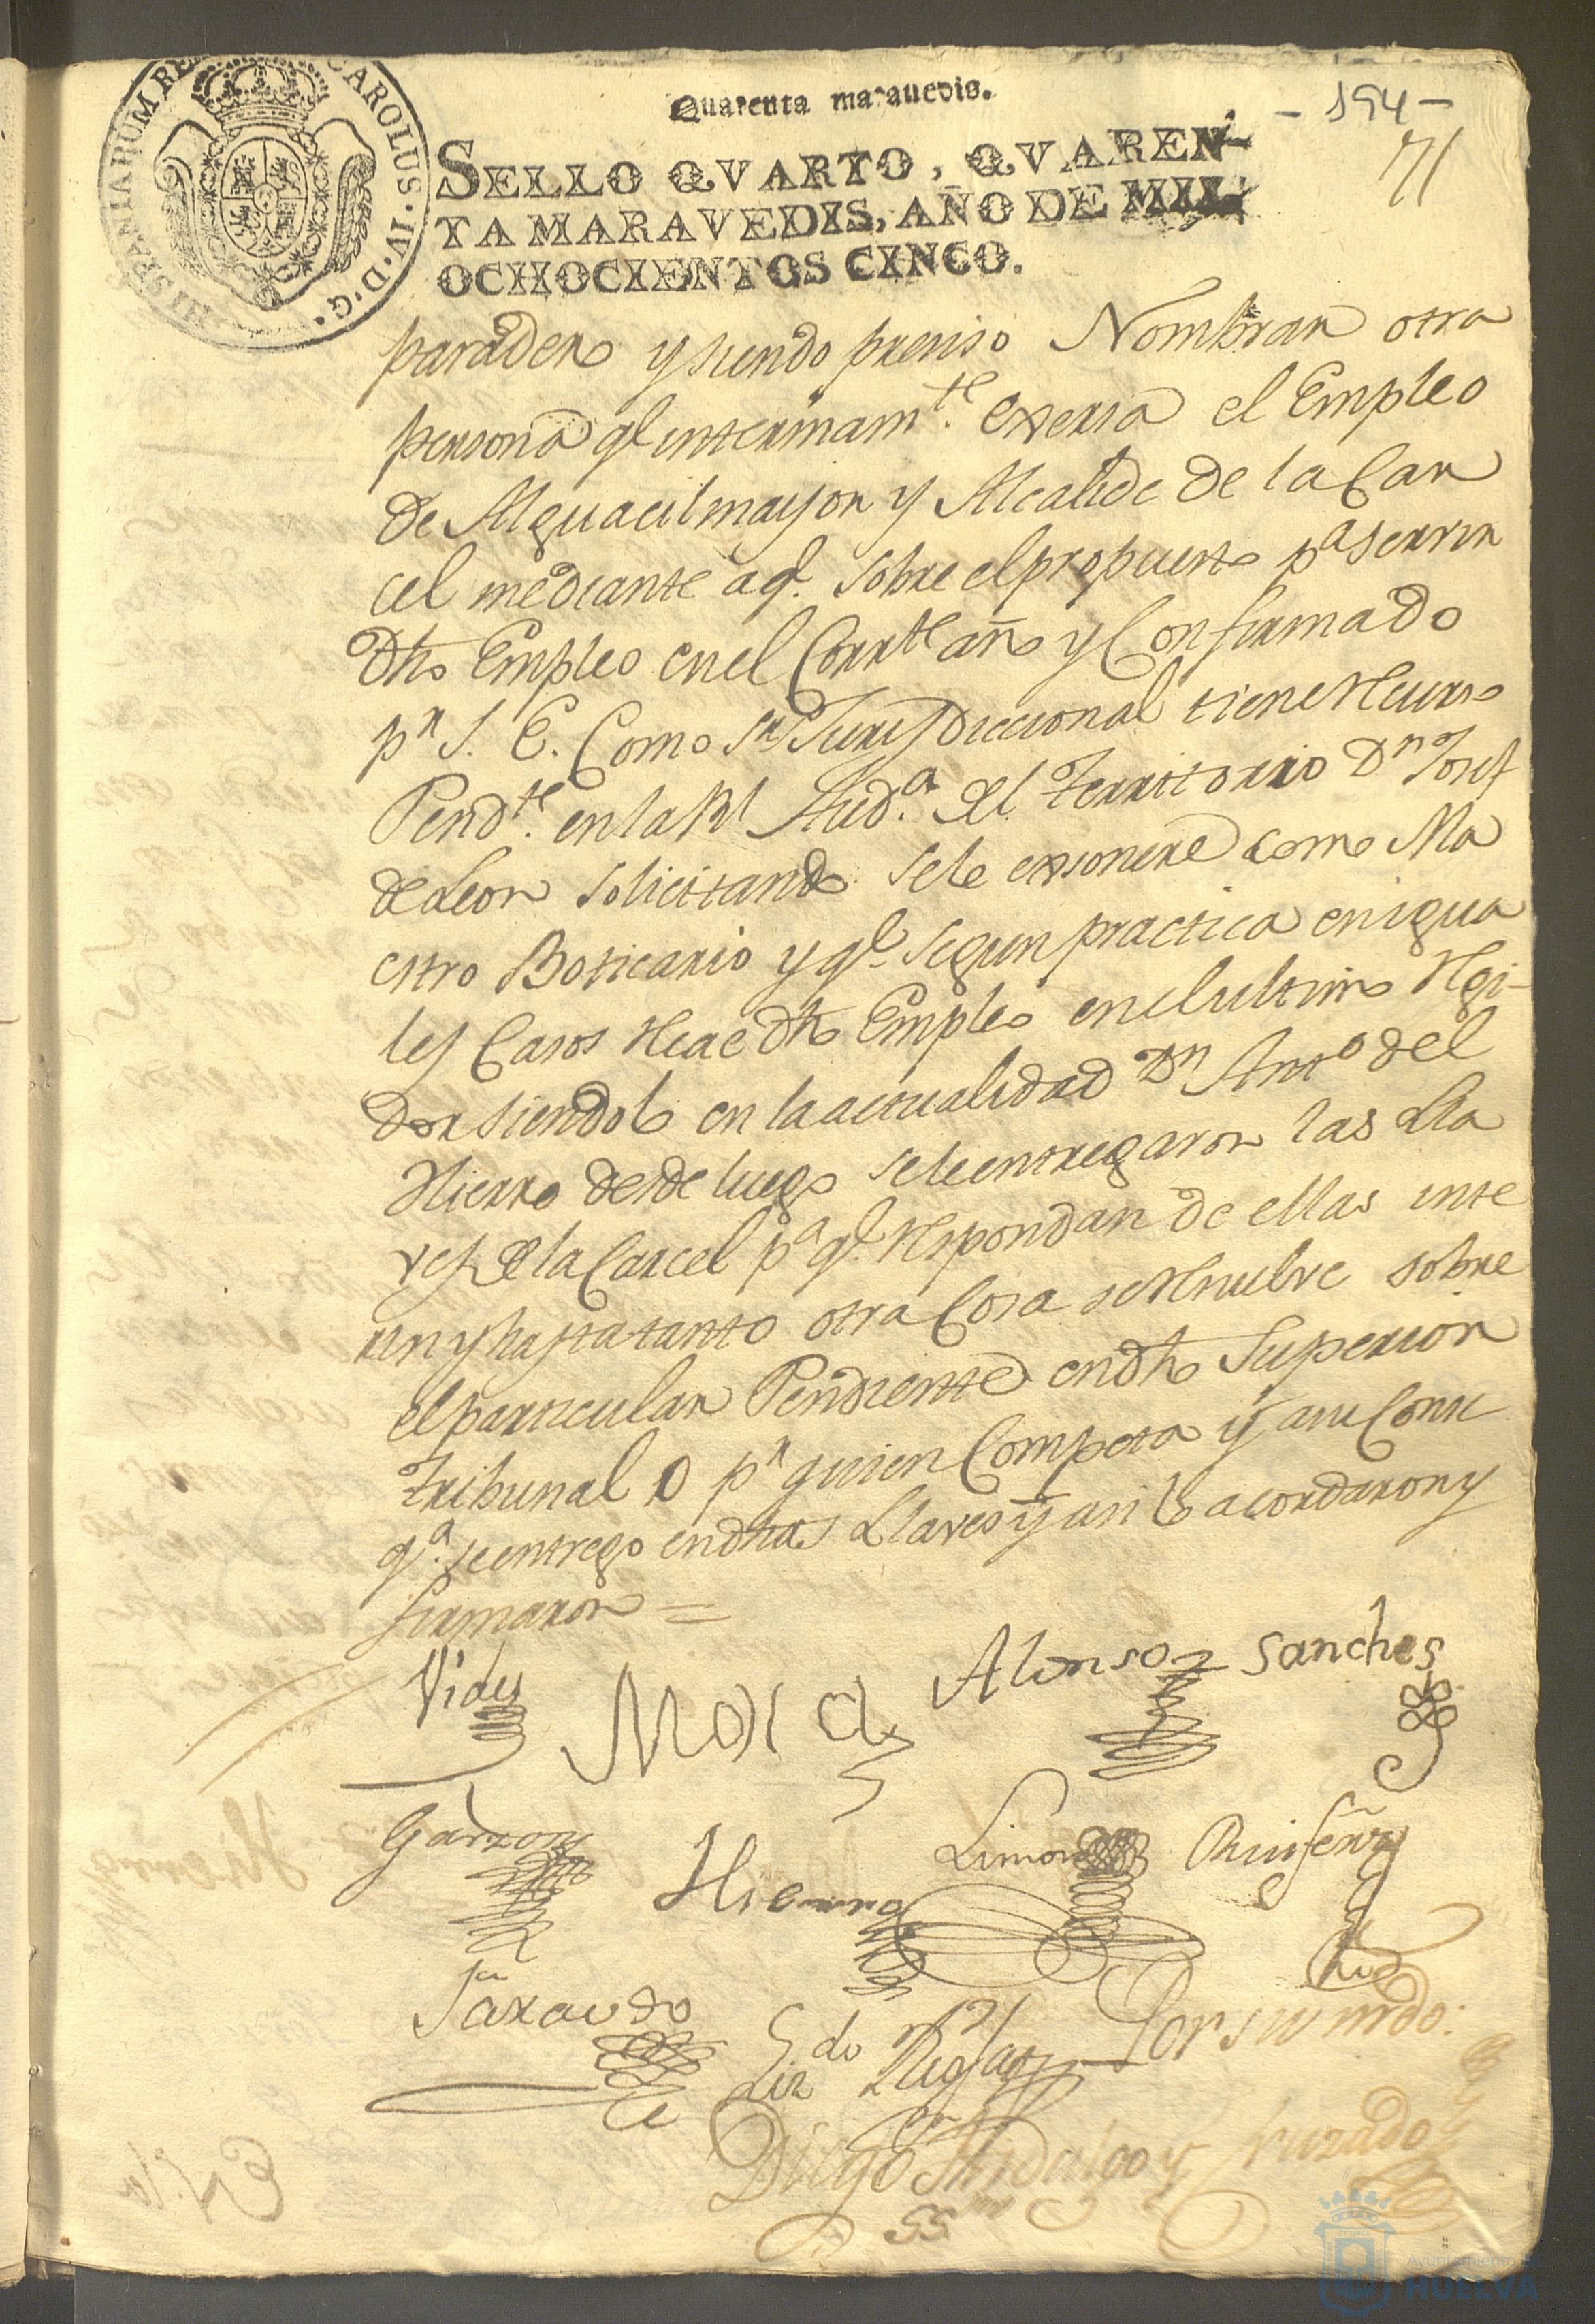 HISPANIARUM RE CAROLUS·IV·D·G·
Quarenta marauedis.
- 194 -
71
SELLO QVARTO, QVAREN-
TA MARAVEDIS, AÑO DE MIL
OCHOCIENTOS CINCO.
paradero y siendo preciso Nombrar otra
persona q.e interinam.te exersa el Empleo
de Alguacil mayor y Alcalide de la Car
cel mediante aq.e sobre el propuesto p.a servir
dho Empleo en el Corr.te año y Confirmado
p.r S. E. Como s.r Jurisdiccional tiene Recurso
Pend.te en la R.l Aud.a del territorio D.n Josef
de Leon solicitando se le exsonere como Ma
estro Boticario y q.e segun practica en igua
les Casos Recae dho Empleo en el ultimo Regi-
dor siendolo en la actualidad D.n Ant.o del
Hierro desde luego se le entregaron las Lla
ves de la Carcel p.a q.e respondan de ellas inte
rin y hasta tanto otra Cosa se Resuelve sobre
el particular Pendiente en dho Superior
tribunal o p.r quien Competa y a su Conse
q.a se entrego en dhas Llaves y asi lo acordaron y
firmaron =
Vides Mora Alonso Sanches
Garzon Hierro Limon
Jaraudo Liz.do Por su mdo:
Diego Hidalgo y Cruzado
SS.no
Ayuntamiento de
HUELVA